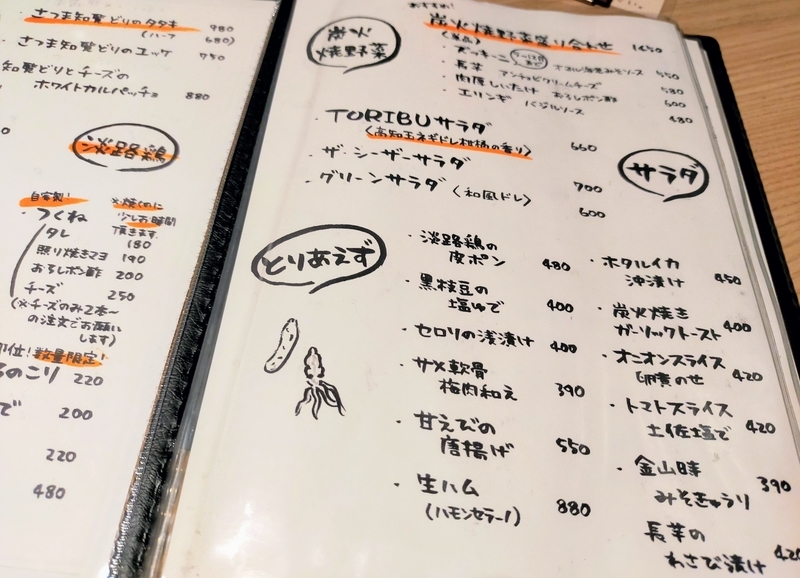 さつま知覧どりのタタキ 980
(ハーフ 680)
・さつま知覧どりのユッケ 750
知覧どりとチーズの
ホワイトカルパッチョ 880
淡路鶏
自家製!
・つくね
※焼くのに
少しお時間
頂きます
タレ 180
照り焼きマヨ 190
おろしポン酢 200
チーズ 250
(※チーズのみ2本〜
の注文でお願い
します)
位!数量限定!
のこり 220
で 200
220
480
おすすめ!
炭火
焼野菜
炭火焼野菜盛り合わせ 1650
(単品)
・ズッキーニ
・長芋 アンチョビクリームチーズ 550
・肉厚しいたけ おろしポン酢 580
・エリンギ バジルソース 600
480
・TORIBUサラダ
〈高知玉ネギドレ柑橘の香り〉 660
・ザ・シーザーサラダ 700
・グリーンサラダ (和風ドレ) 600
サラダ
とりあえず
・淡路鶏の
皮ポン 480
・黒枝豆の
塩ゆで 400
・セロリの浅漬け 400
・サメ軟骨
梅肉和え 390
・甘えびの
唐揚げ 550
・生ハム
(ハモンセラーノ) 880
・ホタルイカ
沖漬け 450
・炭火焼き
ガーリックトースト 400
・オニオンスライス
卵黄のせ 420
・トマトスライス
土佐塩で 420
・金山時
みそきゅうり 390
長芋の
わさび漬け 420